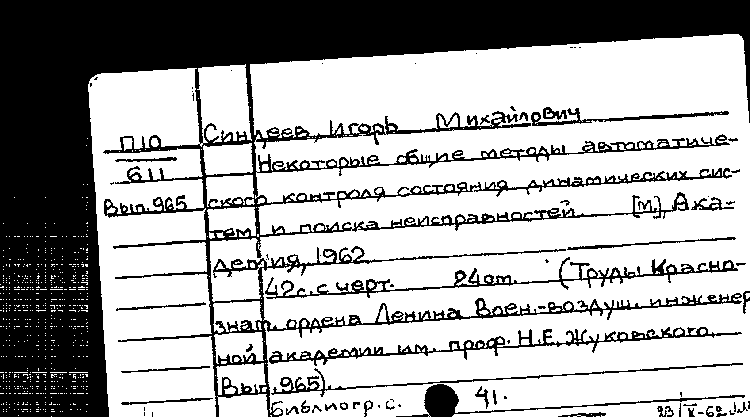 П10
611
Вып.965
Синдеев, Игорь Михайлович
Некоторые общие методы автоматиче-
ского контроля состояния динамических сис-
тем и поиска неисправностей. [М.], Ака-
демия, 1962
42с. с черт. 24 см. (Труды Красно-
знам. ордена Ленина Воен.-воздуш. инженер
ной академии им. проф. Н.Е. Жуковского.
Вып.965).
Библиогр. с. 41.